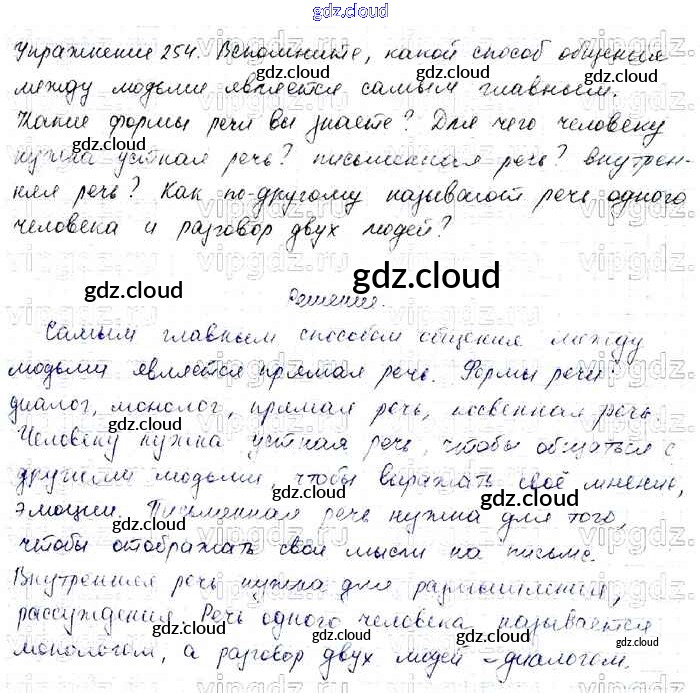 gdz.cloud
Упражнение 254. Вспомните, какой способ общения
gdz.cloud gdz.cloud
между людьми является самым главным.
Какие формы речи вы знаете? Для чего человеку
gdz.cloud gdz.cloud
нужна устная речь? письменная речь? внутрен-
няя речь? Как по-другому называют речь одного
gdz.cloud
человека и разговор двух людей?
gdz.cloud gdz.cloud
Решение.
Самым главным способом общения между
людьми является прямая речь. Формы речи:
gdz.cloud
диалог, монолог, прямая речь, косвенная речь.
gdz.cloud
Человеку нужна устная речь, чтобы общаться с
другими людьми, чтобы выражать своё мнение,
gdz.cloud gdz.cloud
эмоции. Письменная речь нужна для того,
gdz.cloud
чтобы отображать свои мысли на письме.
Внутренняя речь нужна для размышления,
рассуждения. Речь одного человека называется
gdz.cloud gdz.cloud
монологом, а разговор двух людей – диалогом.
gdz.cloud